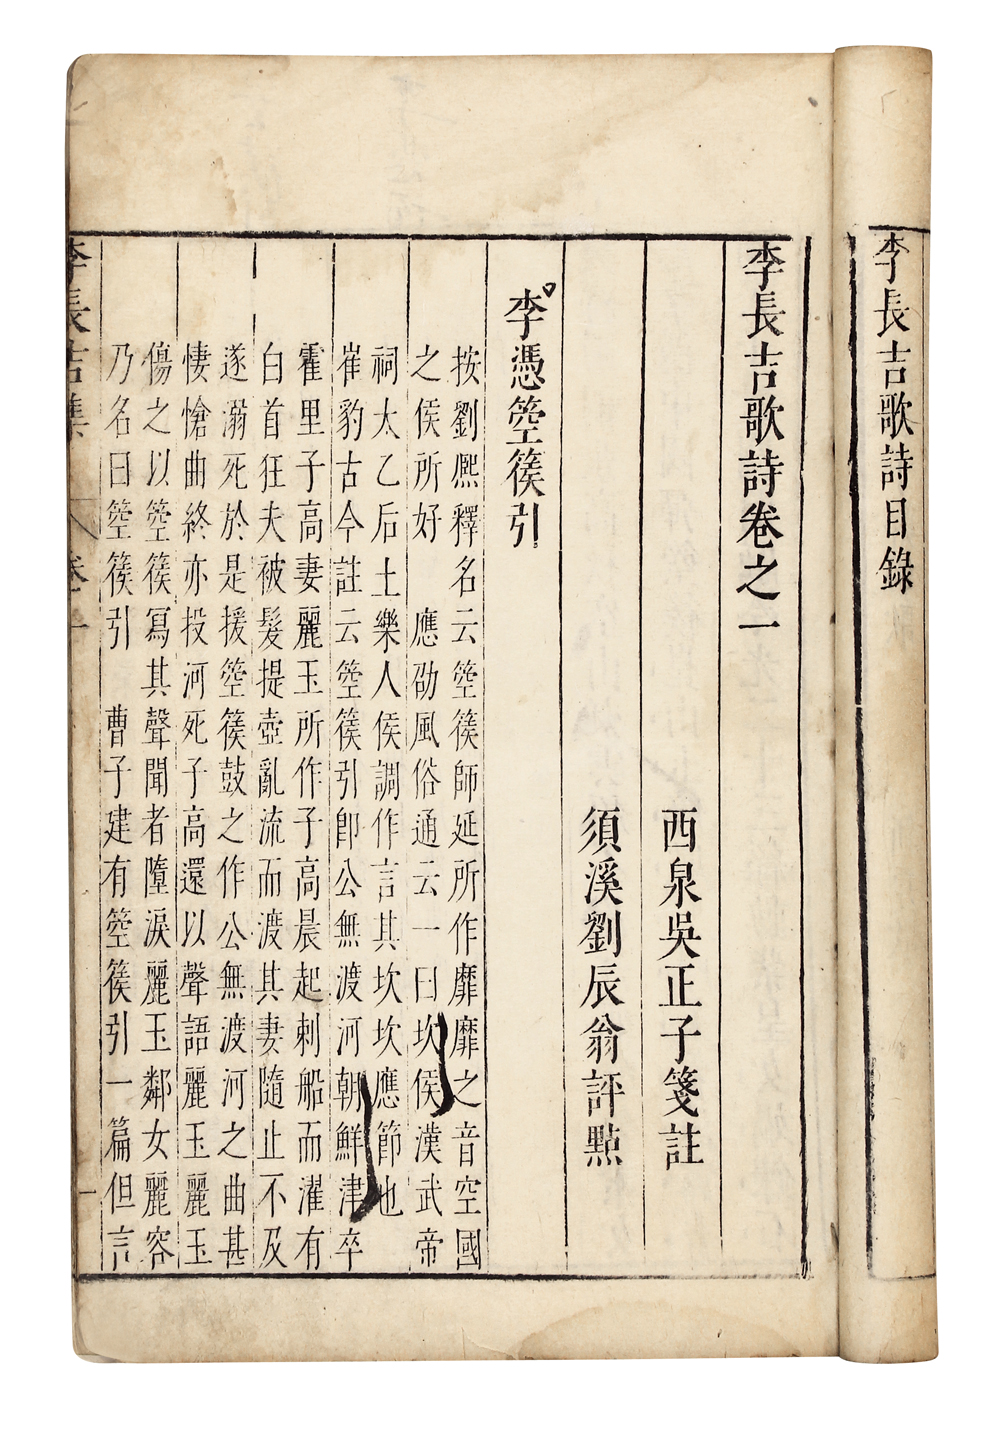 李長吉歌詩目錄
李長吉歌詩卷之一
西泉吳正子箋註
須溪劉辰翁評點
李憑箜篌引
按劉熈釋名云箜篌師延所作靡靡之音空國
之侯所好　應劭風俗通云一曰坎侯漢武帝
祠太乙后土樂人侯調作言其坎坎應節也
崔豹古今註云箜篌引卽公無渡河朝鮮津卒
霍里子高妻麗玉所作子高晨起刺船而濯有
白首狂夫被髮提壺亂流而渡其妻隨止不及
遂溺死於是援箜篌鼓之作公無渡河之曲甚
悽愴曲終亦投河死子高還以聲語麗玉麗玉
傷之以箜篌冩其聲聞者墮淚麗玉鄰女麗容
乃名曰箜篌引　曹子建有箜篌引一篇但言
李長吉集　卷一　一